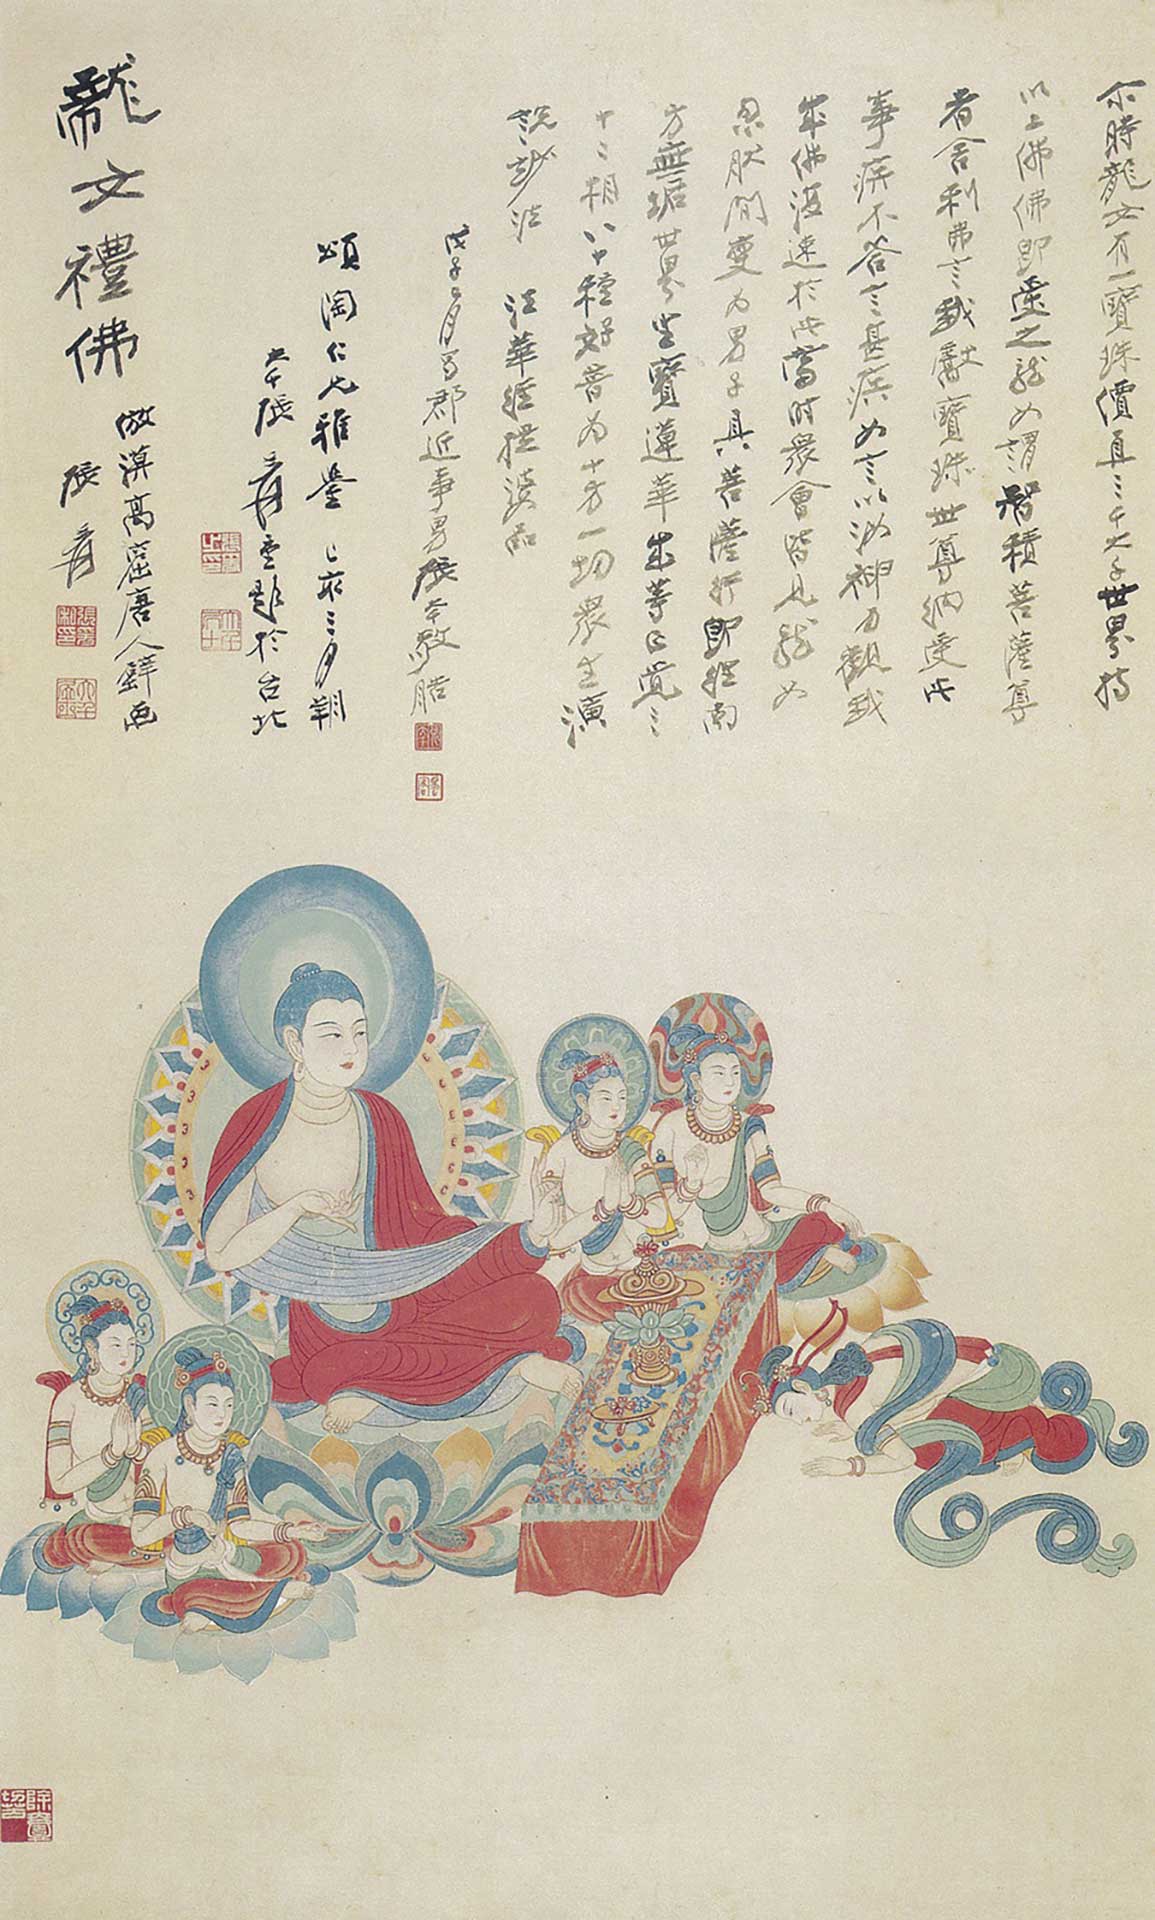 尒時龍女有一寶珠價直三千大千世界持
以上佛佛即受之龍女謂智積菩薩尊
者舍利弗言我獻寶珠世尊納受此
事疾不答言甚疾女言以汝神力觀我
成佛復速於此當時眾會皆見龍女
忽肰間變為男子具菩薩行即往南
方無垢世界坐寶蓮華成等正覺三
十二相八十種好普為十方一切眾生演
說妙法 法華經提婆品
戊子 月蜀郡近事男張大千敬
頌陶仁兄雅鑒 己亥三月朔
大千張爰重題於台北
龍女禮佛 倣漠高窟唐人壁画
張爰